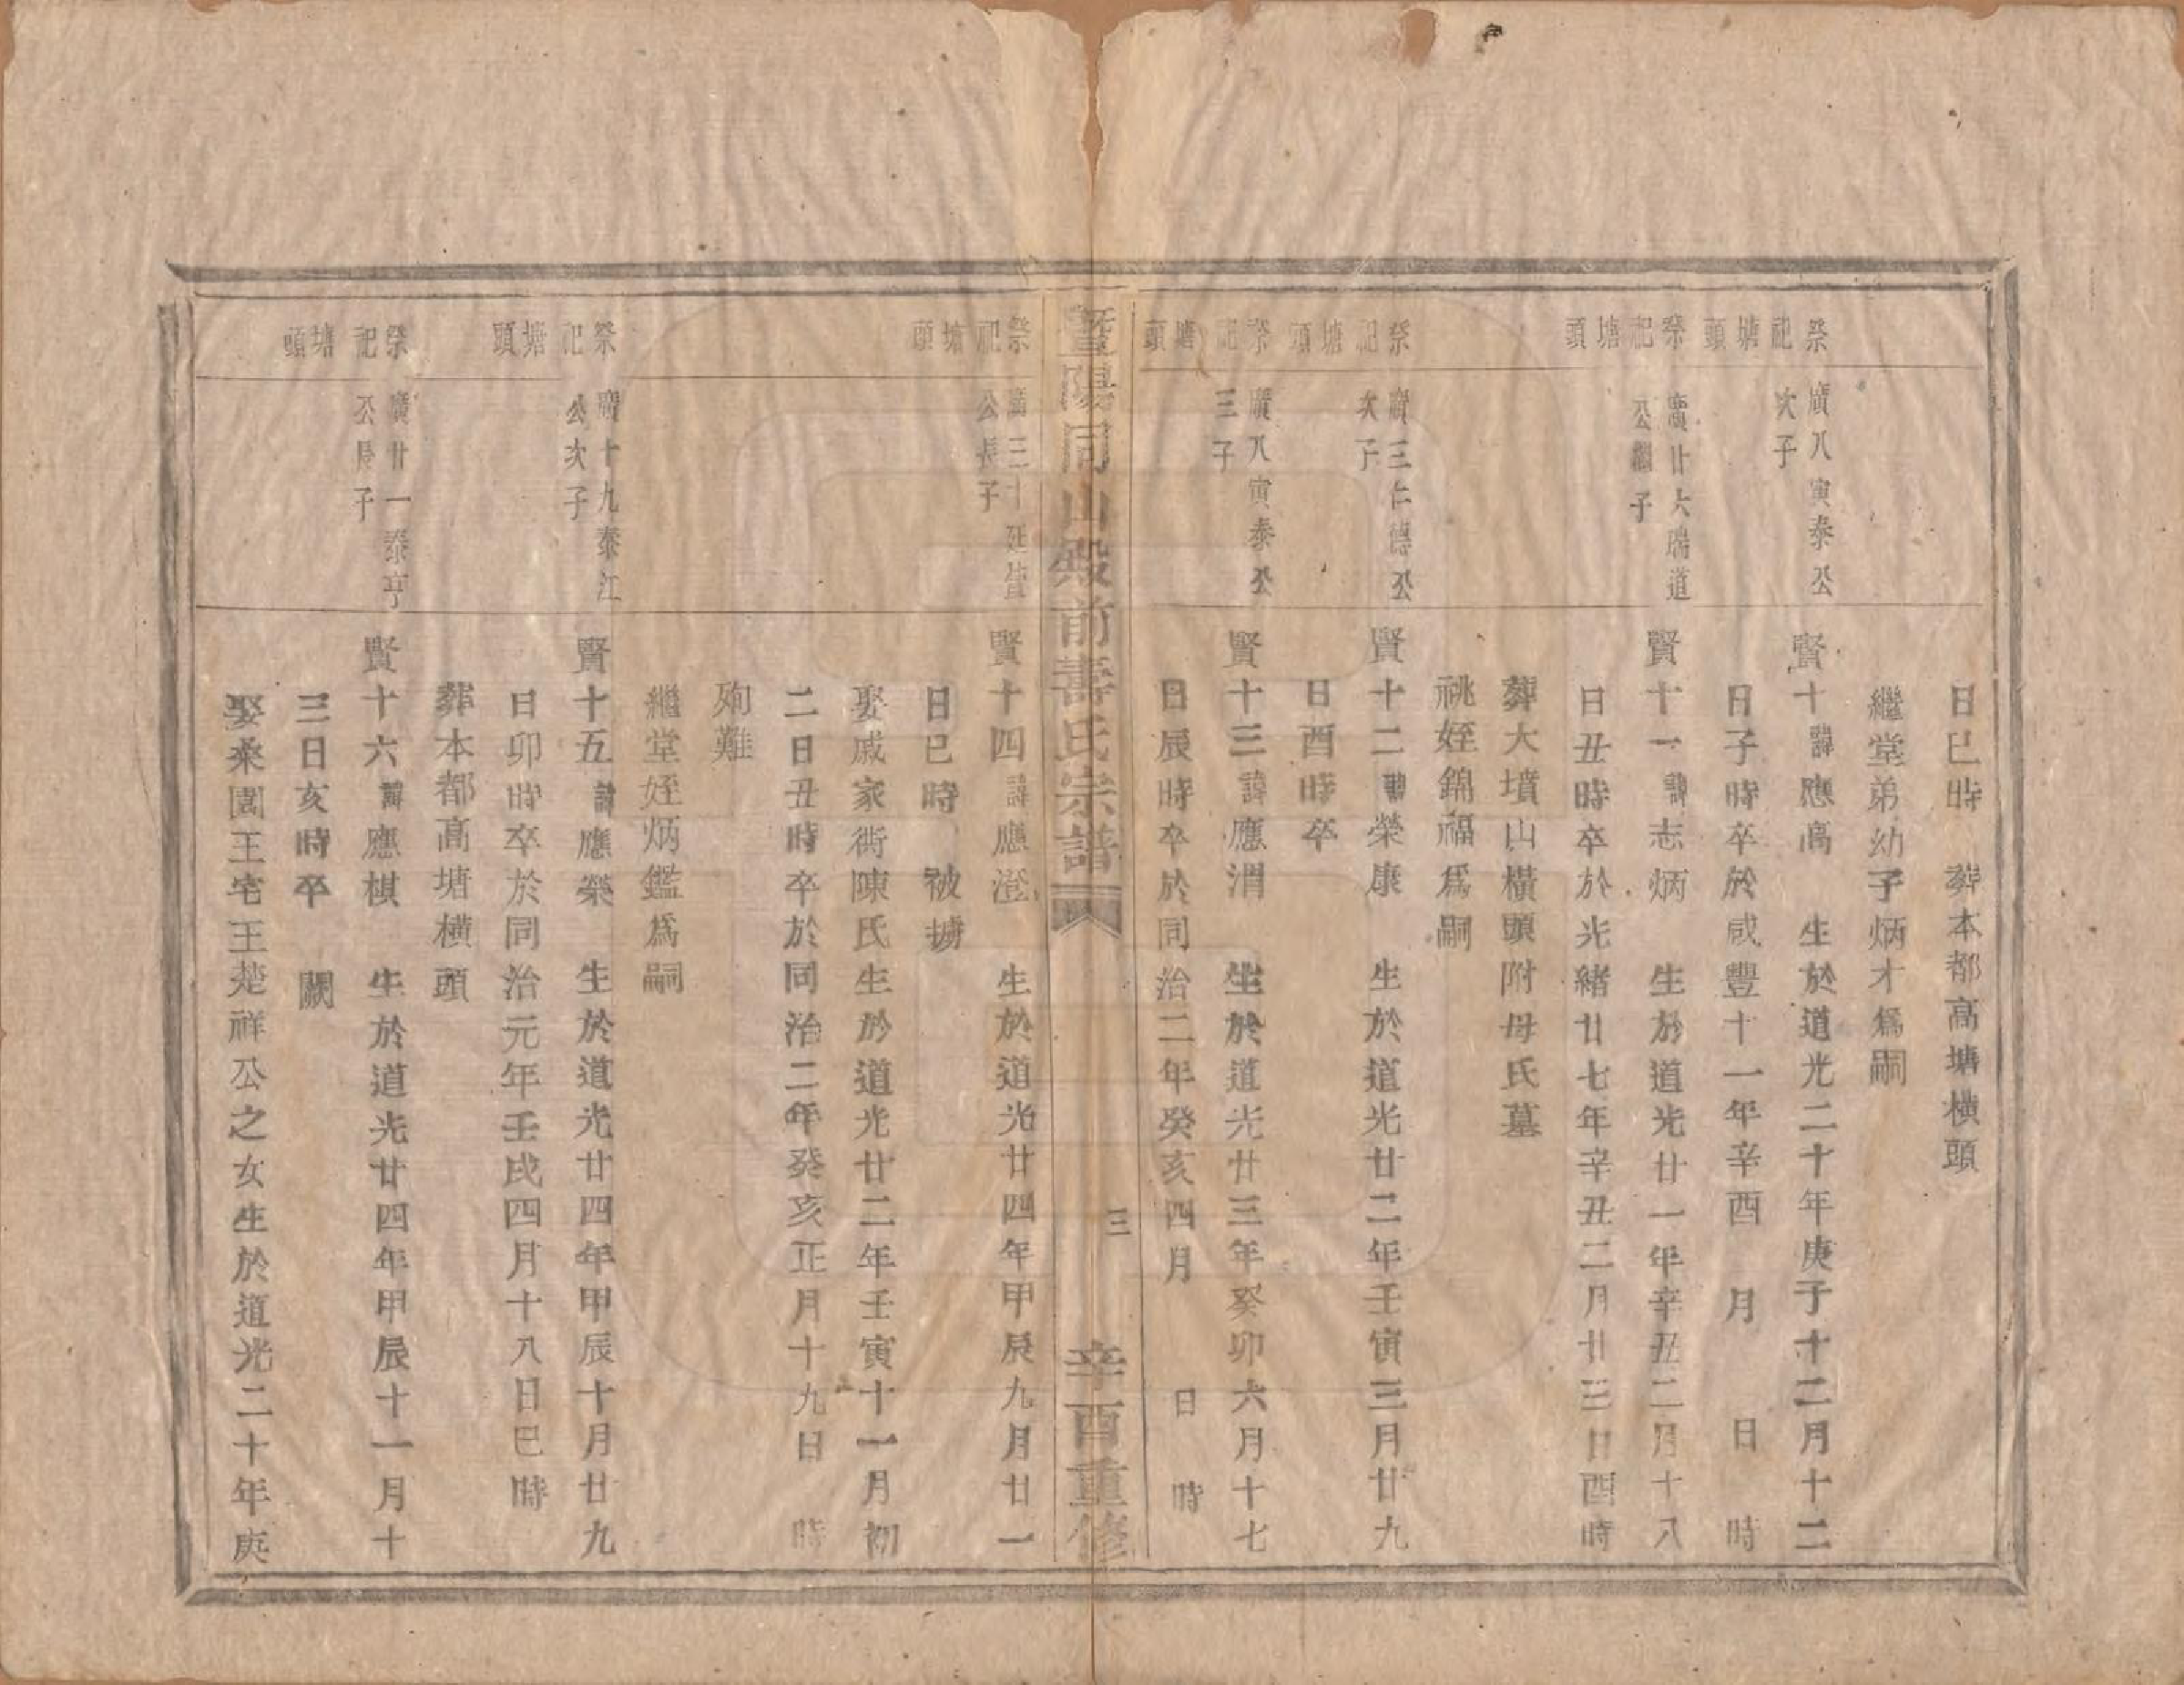 日巳時　葬本都高塘橫頭
繼堂弟幼子炳才爲嗣
祭祀塘頭
廣八寅泰公
次子
賢十諱應高　生於道光二十年庚子十二月十二
日子時卒於咸豐十一年辛酉　月　日　時
祭祀塘頭
廣廿大瑞道
公繼子
賢十一諱志炳　生於道光廿一年辛丑二月十八
日丑時卒於光緒廿七年辛丑二月廿三日酉時
葬大墳山橫頭附母氏墓
祧姪錦福爲嗣
祭祀塘頭
廣三仁德公
次子
賢十二諱榮康　生於道光廿二年壬寅三月廿九
日酉時卒
祭祀塘頭
廣八寅泰公
三子
賢十三諱應渭　生於道光廿三年癸卯六月十七
日辰時卒於同治二年癸亥四月　日　時
暨陽同山殿前壽氏宗譜
三
辛酉重修
祭祀塘頭
廣三十廷
公長子
賢十四諱應澄　生於道光廿四年甲辰九月廿一
日巳時　被擄
娶戚家衖陳氏生於道光廿二年壬寅十一月初
二日丑時卒於同治二年癸亥正月十九日　時
殉難
繼堂姪炳鑑爲嗣
祭祀塘頭
廣十九泰江
公次子
賢十五諱應榮　生於道光廿四年甲辰十月廿九
日卯時卒於同治元年壬戌四月十八日巳時
葬本都高塘橫頭
祭祀塘頭
廣廿一泰亨
公長子
賢十六諱應棋　生於道光廿四年甲辰十一月十
三日亥時卒　闕
娶桑園王宅王楚祥公之女生於道光二十年庚